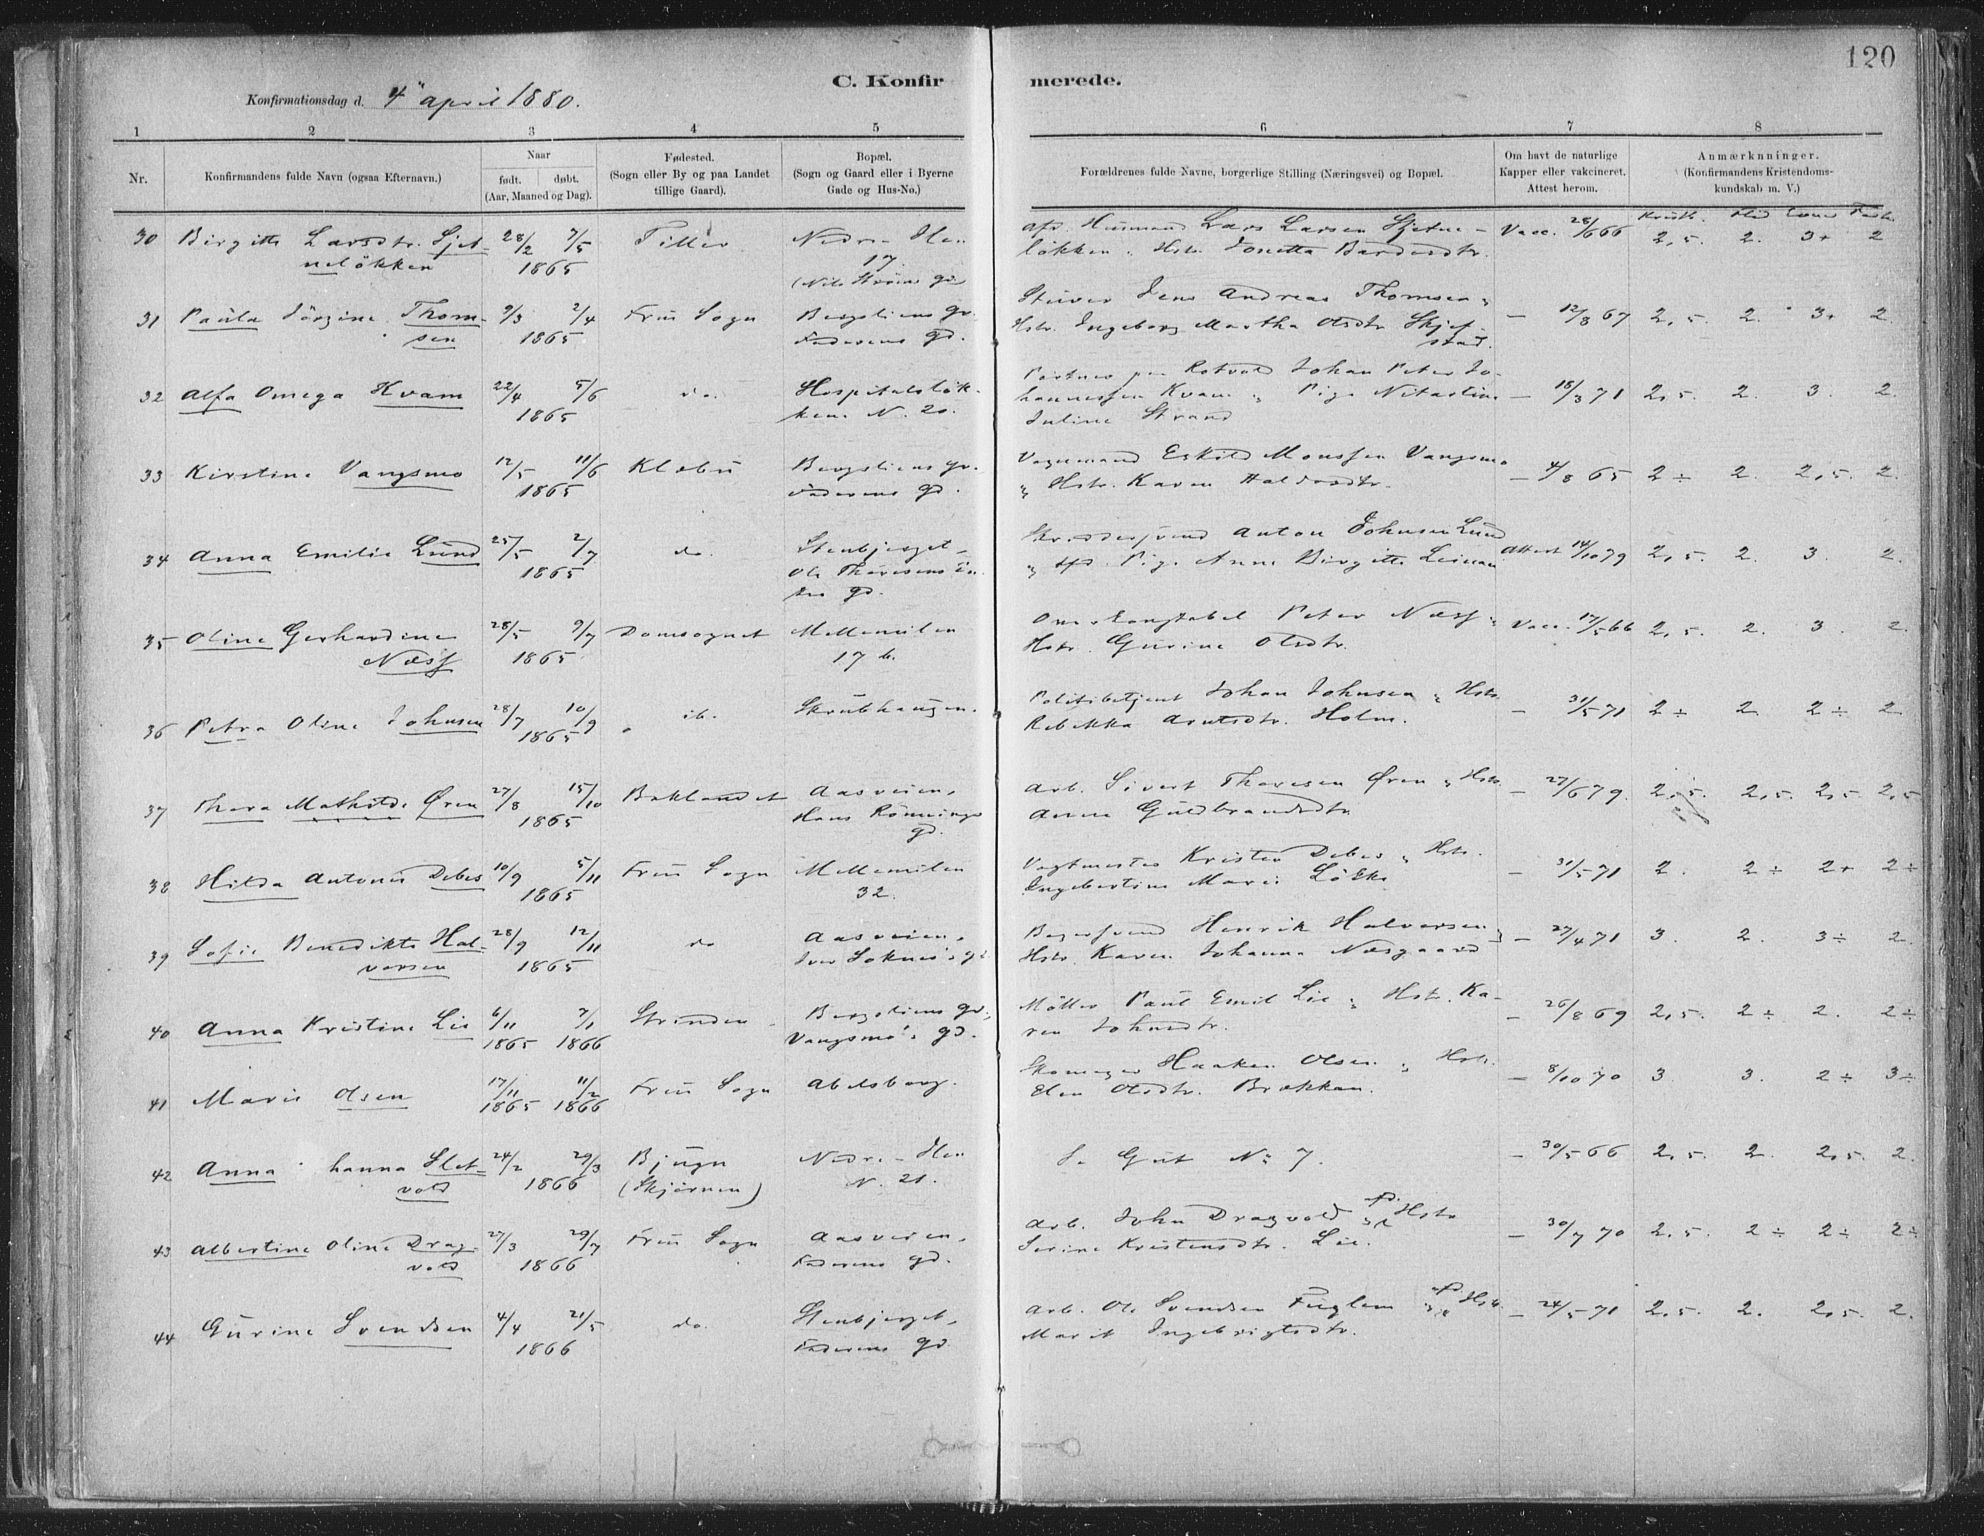 120
C. Konfirmerede.
Konfirmationsdag d. 4de april 1880.
1 2 3 4 5 6 7 8
Nr.
Konfirmandens fulde Navn (ogsaa Efternavn.)
Naar
født. døbt.
(Aar, Maaned og Dag).
Fødested.
(Sogn eller By og paa Landet
tillige Gaard).
Bopæl.
(Sogn og Gaard eller i Byerne
Gade og Hus-No.)
Forældrenes fulde Navne, borgerlige Stilling (Næringsvei) og Bopæl.
Om havt de naturlige
Kopper eller vakcineret.
Attest herom.
Anmærkninger.
(Konfirmandens Kristendoms-
kundskab m. V.)
Flid Evner
30 Birgitte Larsdtr. Sjet- 28/2 7/5 Tiller Nedre - Ilen afd. Husmand Lars Larsen Sjetne- Vacc. 28/6 66 2,5. 2. 3+ 2
neløkken 1865 17. løkken Hstr. Jonetta Bardosdtr.
(Nils gd
31 Paula Jörgine Thom- 9/3 2/4 Frue Sogn Bergsliens gd. Stuver Jens Andreas Thomsen — 12/8 67 2,5. 2. 3+ 2
sen 1865 Faderens gd. Hstr. Ingeborg Martha Olsdtr Skjef-
stad.
32 Alfa Omega Kvam 22/4 5/6 do. Hospitalsløk- Portner paa Rotvold Johan Peter Jo- — 18/3 71 2,5. 2. 3. 2.
1865 ken N. 20. hannessen Kvam Pige
Juline Strand
33 Kirstine Vangsmo 12/5 11/6 Klæbu Bergsliens gd. Vognmand Eskild Monssen Vangsmo — 4/8 65 2÷ 2. 2,5. 2.
1865 Faderens gd. Hstr. Karen Haldosdtr.
34 Anna Emilie Lund 25/5 2/7 do. Stenbjerget, Skræddersvend Anton Johnsen Lund Attest 14/10 79 2,5. 2. 3. 2.
1865 Ole Pige Anne Birgitte
gd.
35 Oline Gerhardine 28/5 9/7 Domsognet Mellemilen Peter Næss Vacc. 17/5 66 2,5. 2. 3. 2.
Næss 1865 17 b. Hstr. Gurine Olsdtr.
36 Petra Oline Johnsen 28/7 10/9 ib. Skrubhaugen. Politibetjent Johan Johnsen Hstr. — 31/5 71 2÷ 2 2÷ 2
1865 Rebekka Arntsdtr. Holm.
37 Thora Mathilde Øren 27/8 15/10 Baklandet Aasveien, Arb. Sivert Thoresen Øren Hstr. — 27/6 79. 2,5. 2,5. 2,5 2,5
1865 Hans Rønnings Anne Guldbrandsdtr.
gd.
38 Hilda Antonie Debes 10/9 5/11 Frue Sogn Mellemilen Vagtmester Kristen Debes Hstr. — 31/5 71 2. 2÷ 2+ 2÷
1865 32. Ingebertine Marie Løkke
39 Sofie Benedikte Hal- 28/9 12/11 do Aasveien, Bagersvend Henrik Halvorsen — 27/4 71 3. 2. 3÷ 2.
vorsen 1865 Iver Soknes's gd Hstr. Karen Johanna Næsgaard
40 Anna Kristine Lie 6/11 7/1 Strinden Bergsliens gd., Møller Paul Emil Lie Hstr. Ka- — 26/8 69 2,5. 2÷ 2. 2÷
1865 1866 Vangsmo's gd. ren Johnsdtr.
41 Marie Olsen 17/11 11/2 Frue Sogn Abelsborg. Skomager Haaken Olsen Hstr. — 8/10 70 3 3. 2÷ 3÷
1865 1866 Elen Olsdtr. Brækkan.
42 Anna hanna Slet- 24/2 29/3 Bjugn Nedre - Ilen S. Gut No 7. — 30/5 66 2,5. 2. 2,5. 2.
vold 1866 (Skjørnen) N. 21.
43 Albertine Oline Drag- 27/3 29/7 Frue Sogn Aasveien, Arb. John Dragvold afd. Hstr — 30/7 70 2,5. 2÷ 2÷ 2÷
vold 1866 Faderens gd. Serine Kristensdtr. Lie.
44 Gurine Svendsen 4/4 21/5 do. Stenbjerget, Arb. Ole Svendsen Fuglem afd Hstr. — 24/5 71 2,5. 2. 2,5. 2.
1866 Faderens gd Marit Ingebrigtsdtr.